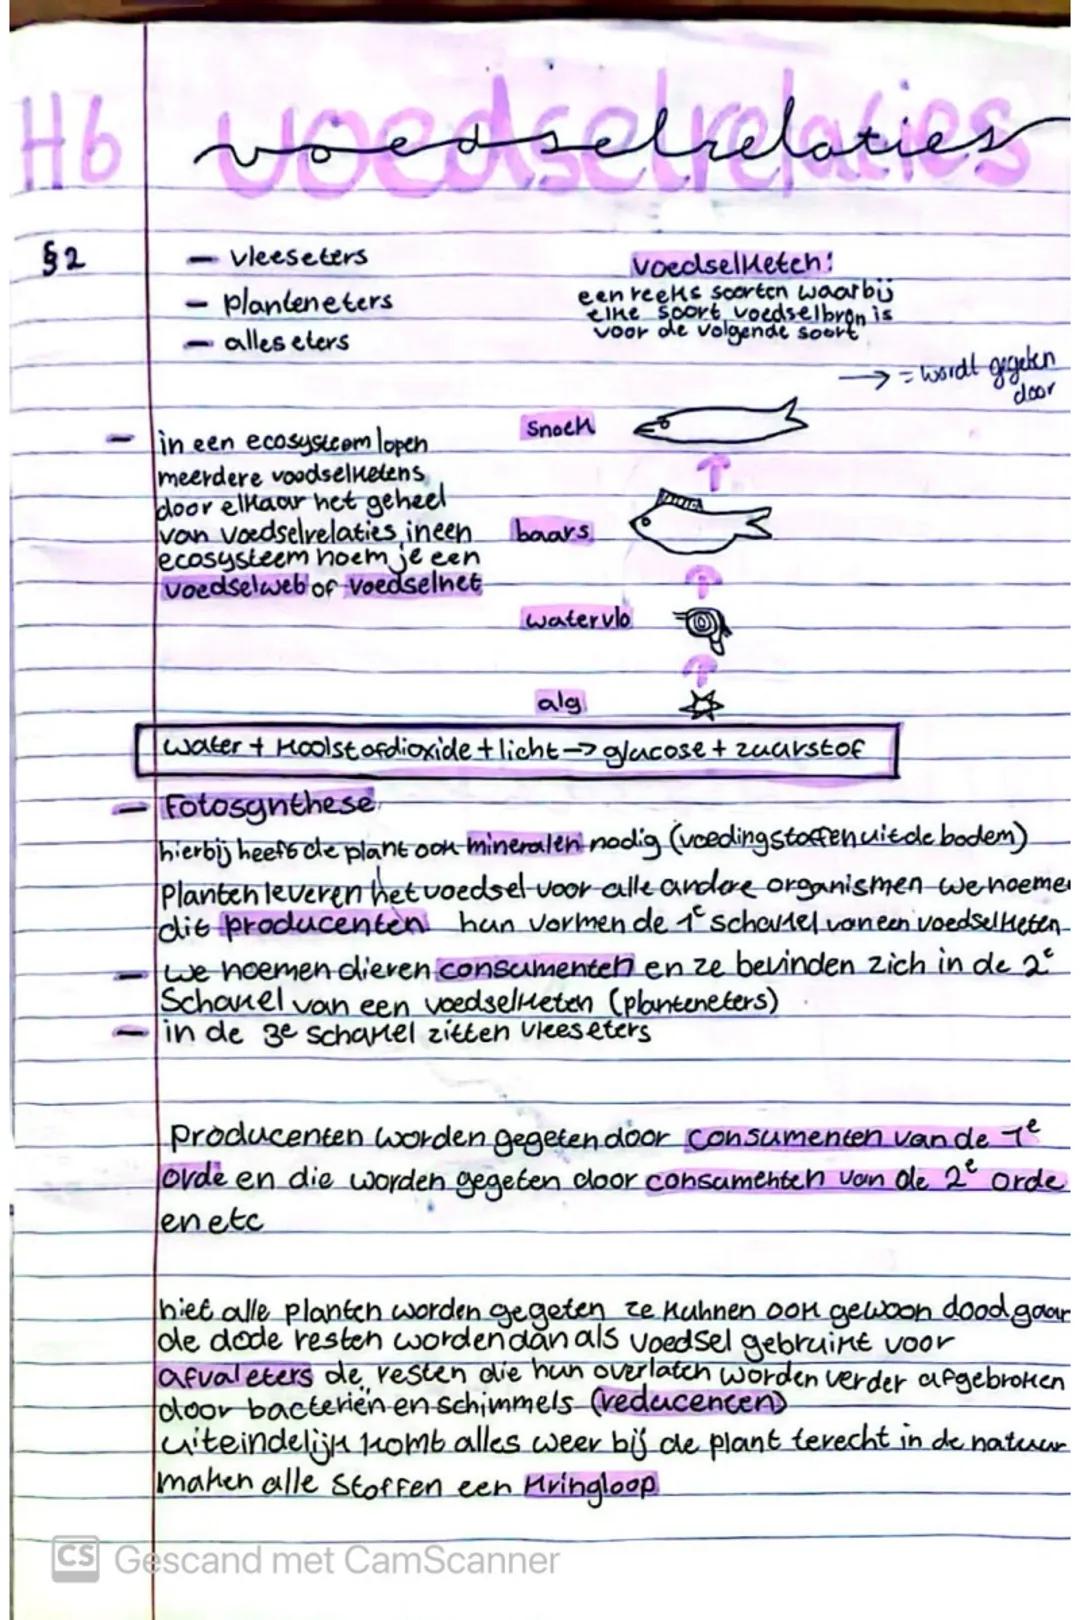 H6 voedselrelaties
§2
- vleeseters
- planteneters
- alleseters
voedselketen:
een reeks soorten waarbij
elke soort voedselbron is
voor de volgende soort
→ = wordt gegeten
door
- in een ecosysteem lopen
meerdere voedselketens
door elkaar het geheel
van voedselrelaties in een
ecosysteem noem je een
voedselweb of voedselnet
snoek
baars
watervlo
alg
water + koolstofdioxide + licht → glucose + zuurstof
- Fotosynthese
hierbij heeft de plant ook mineralen nodig (voedingstoffen uit de bodem)
Planten leveren het voedsel voor alle andere organismen we noeme
dit producenten hun vormen de 1e schakel van een voedselketen
- we noemen dieren consumenten en ze bevinden zich in de 2e
schakel van een voedselketen (planteneters)
- in de 3e schakel zitten vleeseters
Producenten worden gegeten door consumenten van de 1e
orde en die worden gegeten door consumenten van de 2e orde
en etc
niet alle planten worden gegeten ze kunnen ook gewoon dood gaan
de dode resten worden dan als voedsel gebruikt voor
afvaleters de resten die hun overlaten worden verder afgebroken
door bacteriën en schimmels (reducenten)
uiteindelijk komt alles weer bij de plant terecht in de natuur
maken alle stoffen een kringloop
CS Gescand met CamScanner